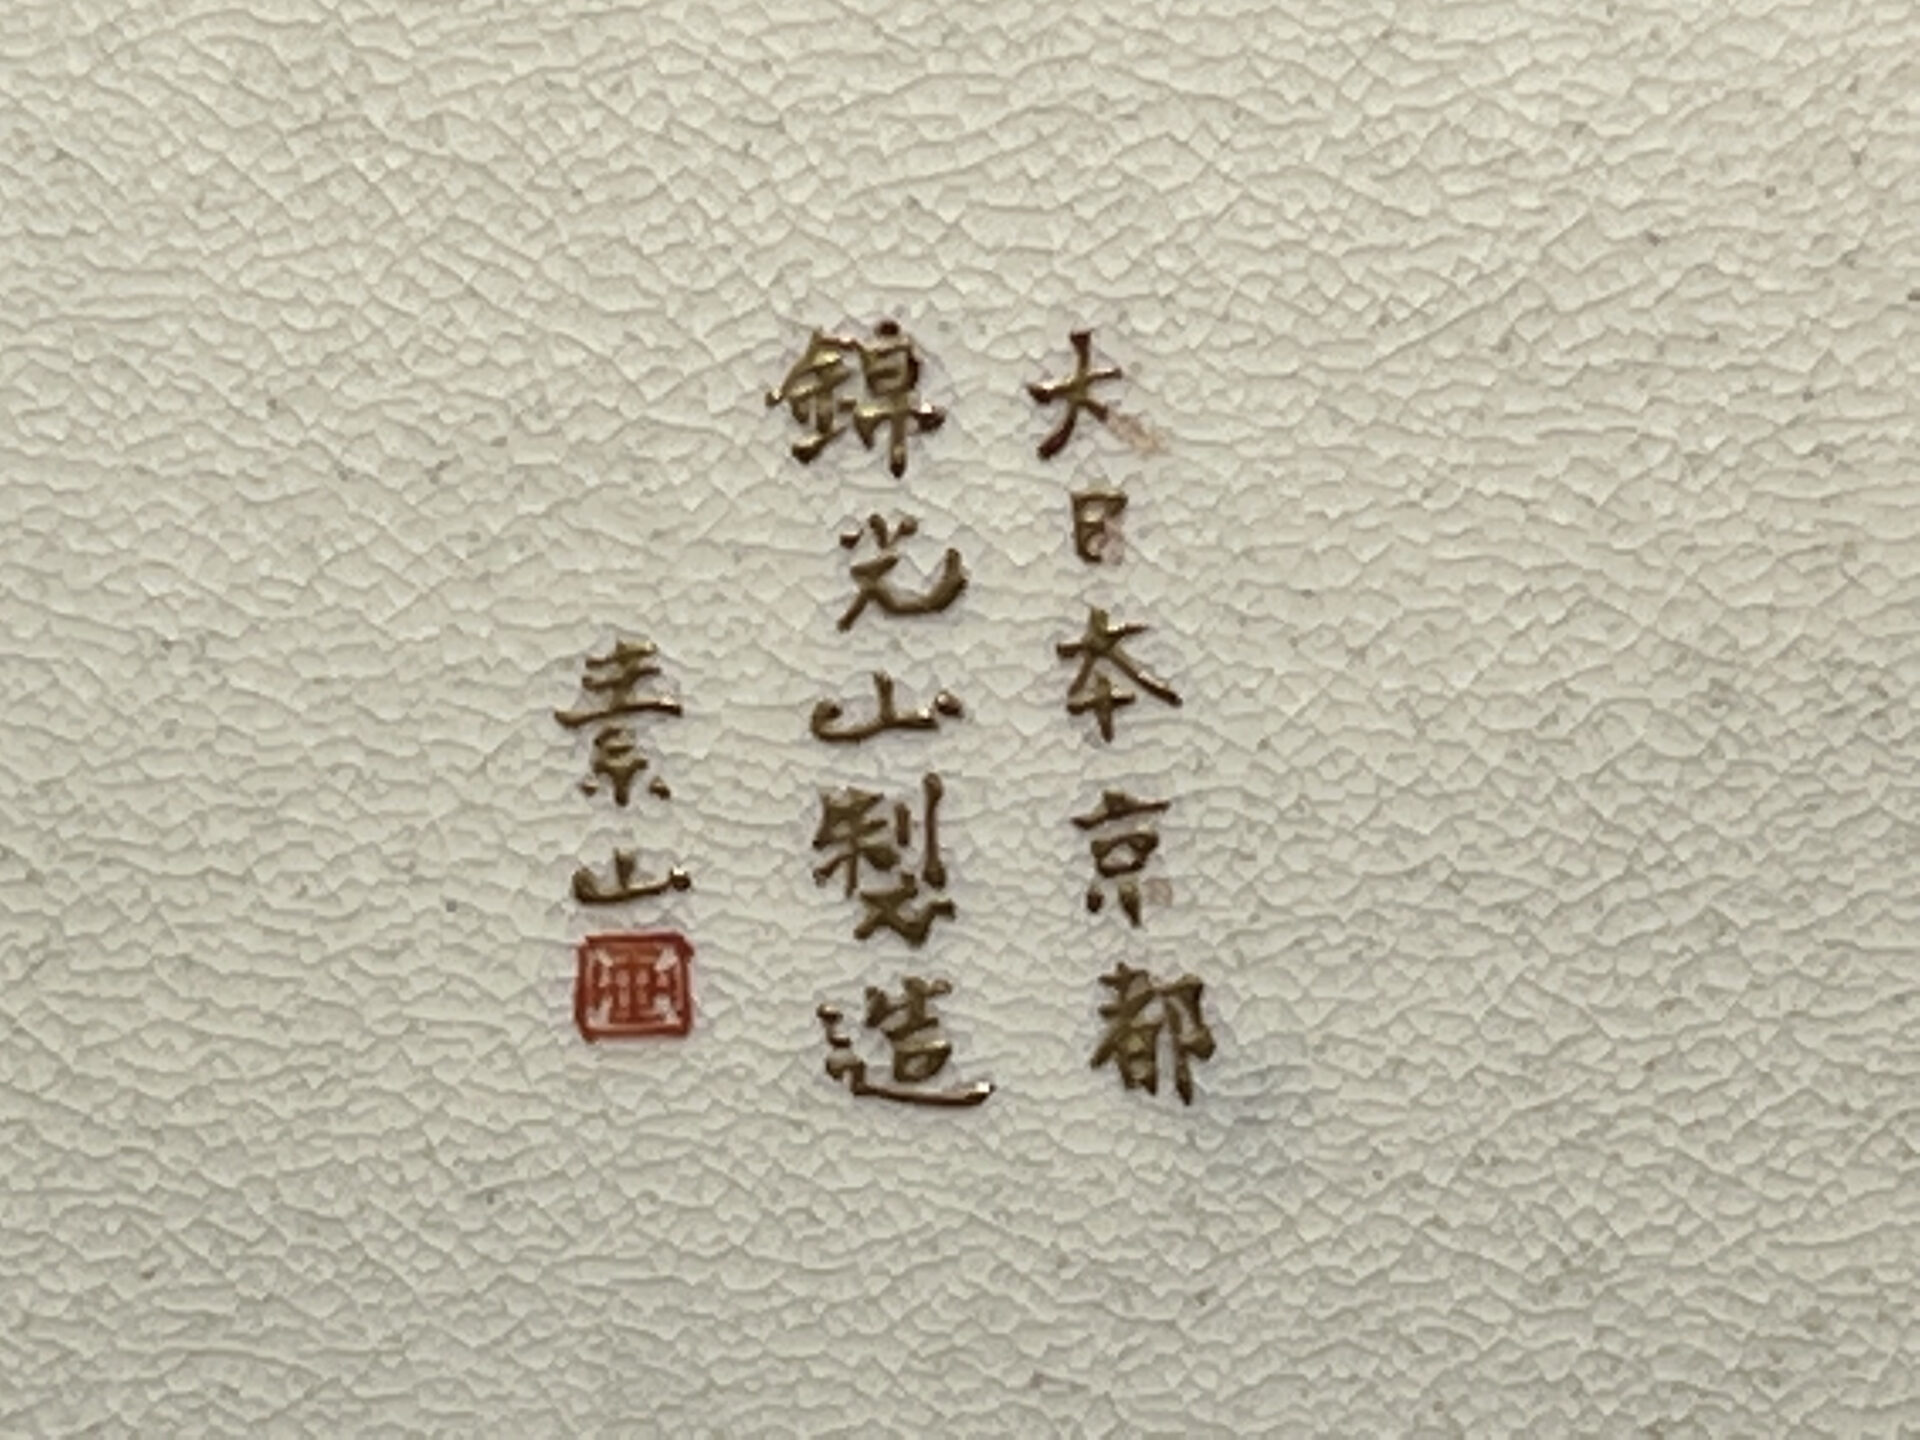 大日本京都
錦光山製造
素山